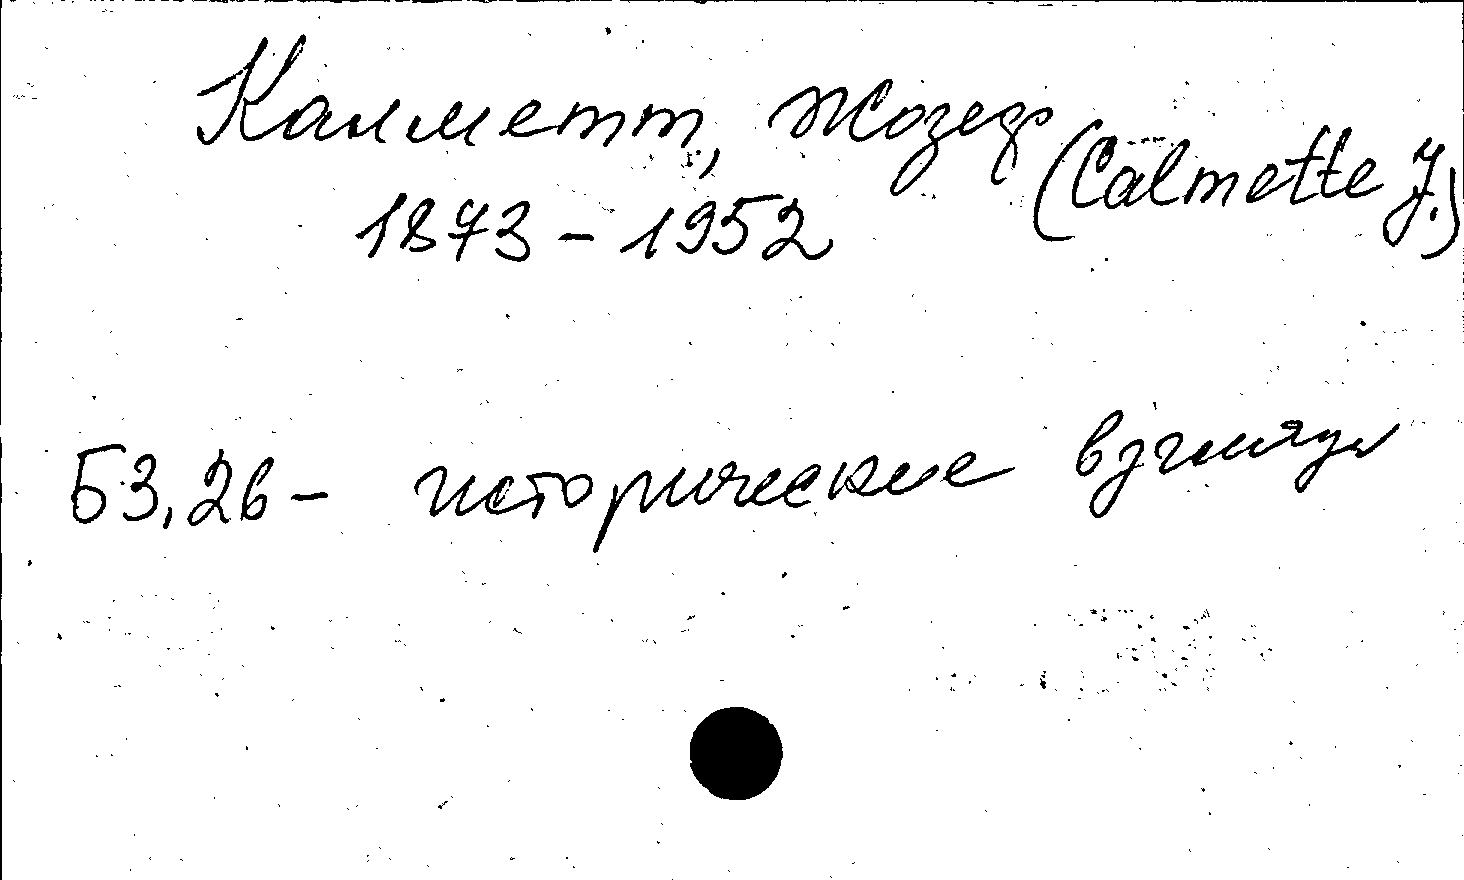 Калметт, Жозеф (Calmette J.)
1873 – 1952
Б3,2в – исторические взгляды